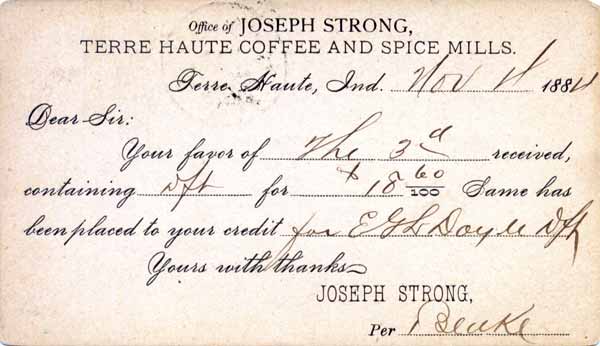 Office of JOSEPH STRONG,
TERRE HAUTE COFFEE AND SPICE MILLS.
Terre Haute, Ind. Nov 4 1884
Dear Sir:
Your favor of The 3d received,
containing Dft for $18 60/100 Same has
been placed to your credit for E G L Doyle Dft
Yours with thanks
JOSEPH STRONG,
Per